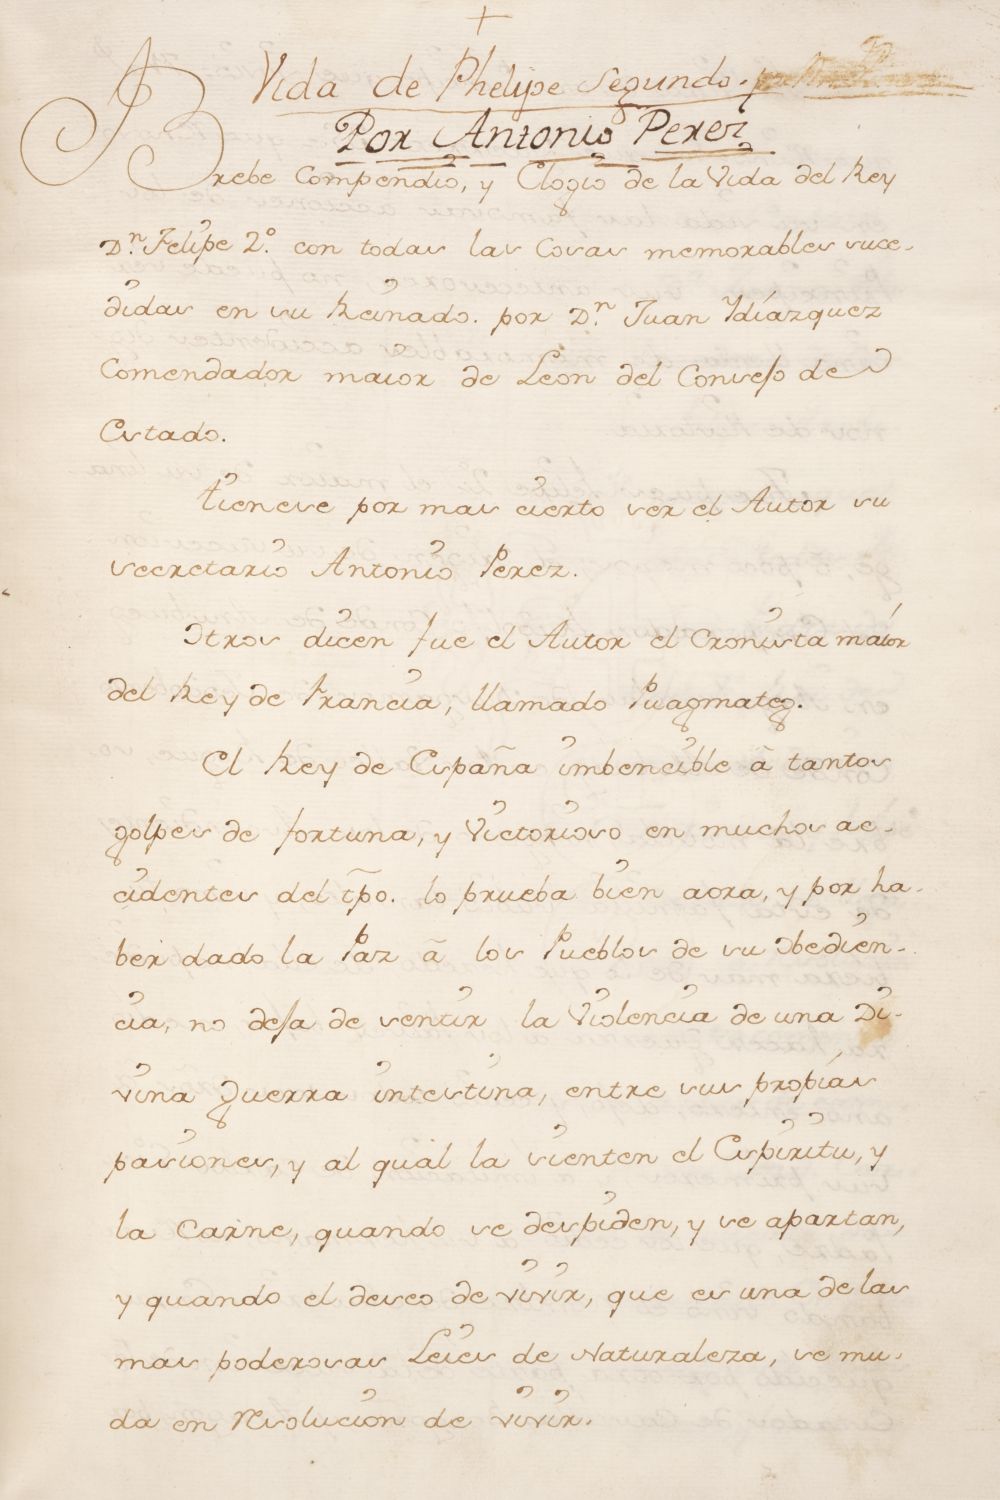 Vida de Phelipe Segundo. por
Por Antonio Perez
Brebe Compendio, y Elogio de la Vida del Rey
Dn. Felipe 2º. con todas las Cosas memorables suce-
didas en su Reinado. por Dn. Juan Ydíazquez
Comendador maior de Leon del Consejo de
Estado.
tienese por mas cierto ser el Autor su
secretario Antonio Perez.
Otros dicen fue el Autor el Cronista maior
del Rey de Francia, llamado Puagmateg.
El Rey de España imbencible â tantos
golpes de fortuna, y Victorioso en muchos ac-
cidentes del tpo. lo prueba bien aora, y por ha-
ber dado la Paz â los Pueblos de su Obedien-
cia, no deja de sentir la Violencia de una Di-
vina guerra intestina, entre sus propías
pasiones, y al qual la sienten el Espiritu, y
la Carne, quando se despiden, y se apartan,
y quando el deseo de vivir, que es una de las
mas poderosas Leies de Naturaleza, se mu-
da en Resolucion de vivir.